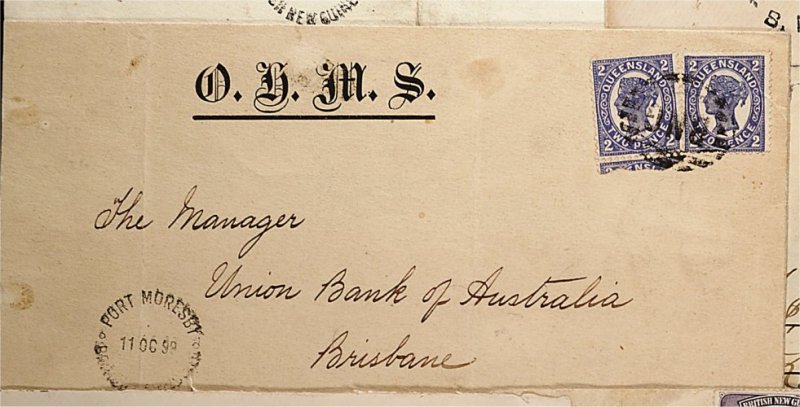 NEW GUINEA
O. H. M. S.
2 QUEENSLAND 2
2 TWO PENCE 2
2 QUEENSLAND 2
PENCE 2
The Manager
Union Bank of Australia
Brisbane
PORT MORESBY
11 OC 99
BRITISH NEW